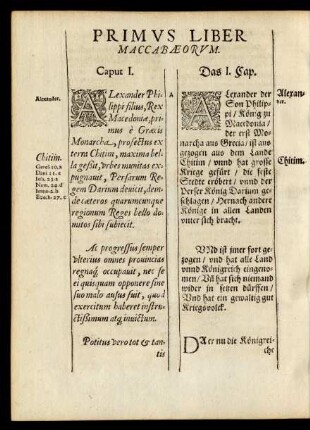 PRIMVS LIBER
MACCABÆORVM.
Caput I.
Alexander.
ALexander Phi-
lippi filius, Rex
Macedoniæ, pri-
mus è Græcis
Monarcha, profectus ex
terra Chitim, maxima bel-
la gessit, vrbes munitas ex-
pugnauit, Persarum Re-
gem Darium deuicit, dein-
de cæteros quarumcumque
regionum Reges bello do-
mitos sibi subiecit.
Chitim.
Ac progressus semper
vlterius omnes prouincias
regnaq; occupauit, nec se
ei quisquam opponere sine
suo malo ausus fuit, quod
exercitum haberet instru-
ctissimum atq; inuictum.
Potitus vero tot & tan-
tis
A
Das I. Cap.
Alexan-
der.
ALexander der
Son Philip-
pi / König zu
Macedonia /
der erst Mo-
narcha aus Grecia / ist aus
gezogen aus dem Land
Chitim / vnnd hat grosse
Kriege gefürt / die feste
Stedte eröbert / vnnd der
Perser König Darium ge-
schlagen / Hernach andere
Könige in allen Landen
vnter sich bracht.
Chitim.
VND ist imer fort ge-
zogen / vnd hat alle Land
vnnd Königreich eingeno-
men / Vnd hat sich niemand
wider in setzen dürffen /
Vnd hat ein gewaltig gut
Kriegsvolck.
DA er nu die Königrei-
che